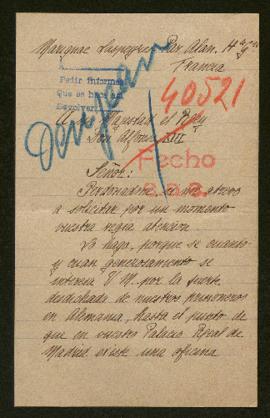 Marignac Laspeyres Par Alan. Hte Gne
Francia
Pedir informes
Que se hace así
Devolver
40521
A Su Majestad el Rey
Don Alfonso XIII
Fecho
Señor:
Perdonadme si me atrevo
a solicitar por un momento
vuestra regia atención.
Lo hago, porque se cuanto
y cuan generosamente se
interesa V. M. por la suerte
desdichada de nuestros prisioneros
en Alemania, hasta el punto de
que en vuestro Palacio Real de
Madrid existe una oficina